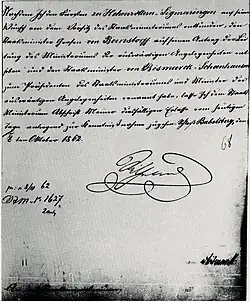 Nachdem Ich den Fürsten zu Hohenzollern-Sigmaringen auf sein
Gesuch von dem Vorsitz des Staatsministeriums entbunden, den
Staatsminister Grafen von Bernstorff auf seinen Antrag der Lei-
tung des Ministeriums der auswärtigen Angelegenheiten
enthoben und den Staatsminister von Bismarck-Schönhausen
zum Präsidenten des Staatsministeriums und Minister der
auswärtigen Angelegenheiten ernannt habe, lasse Ich dem Staats-
Ministerium Abschrift Meiner Erlasse vom heutigen
Tage anliegend zur Kenntnißnahme zugehen. Schloß Babelsberg, den
8 ten Oktober 1862.
Wilhelm
62
1637